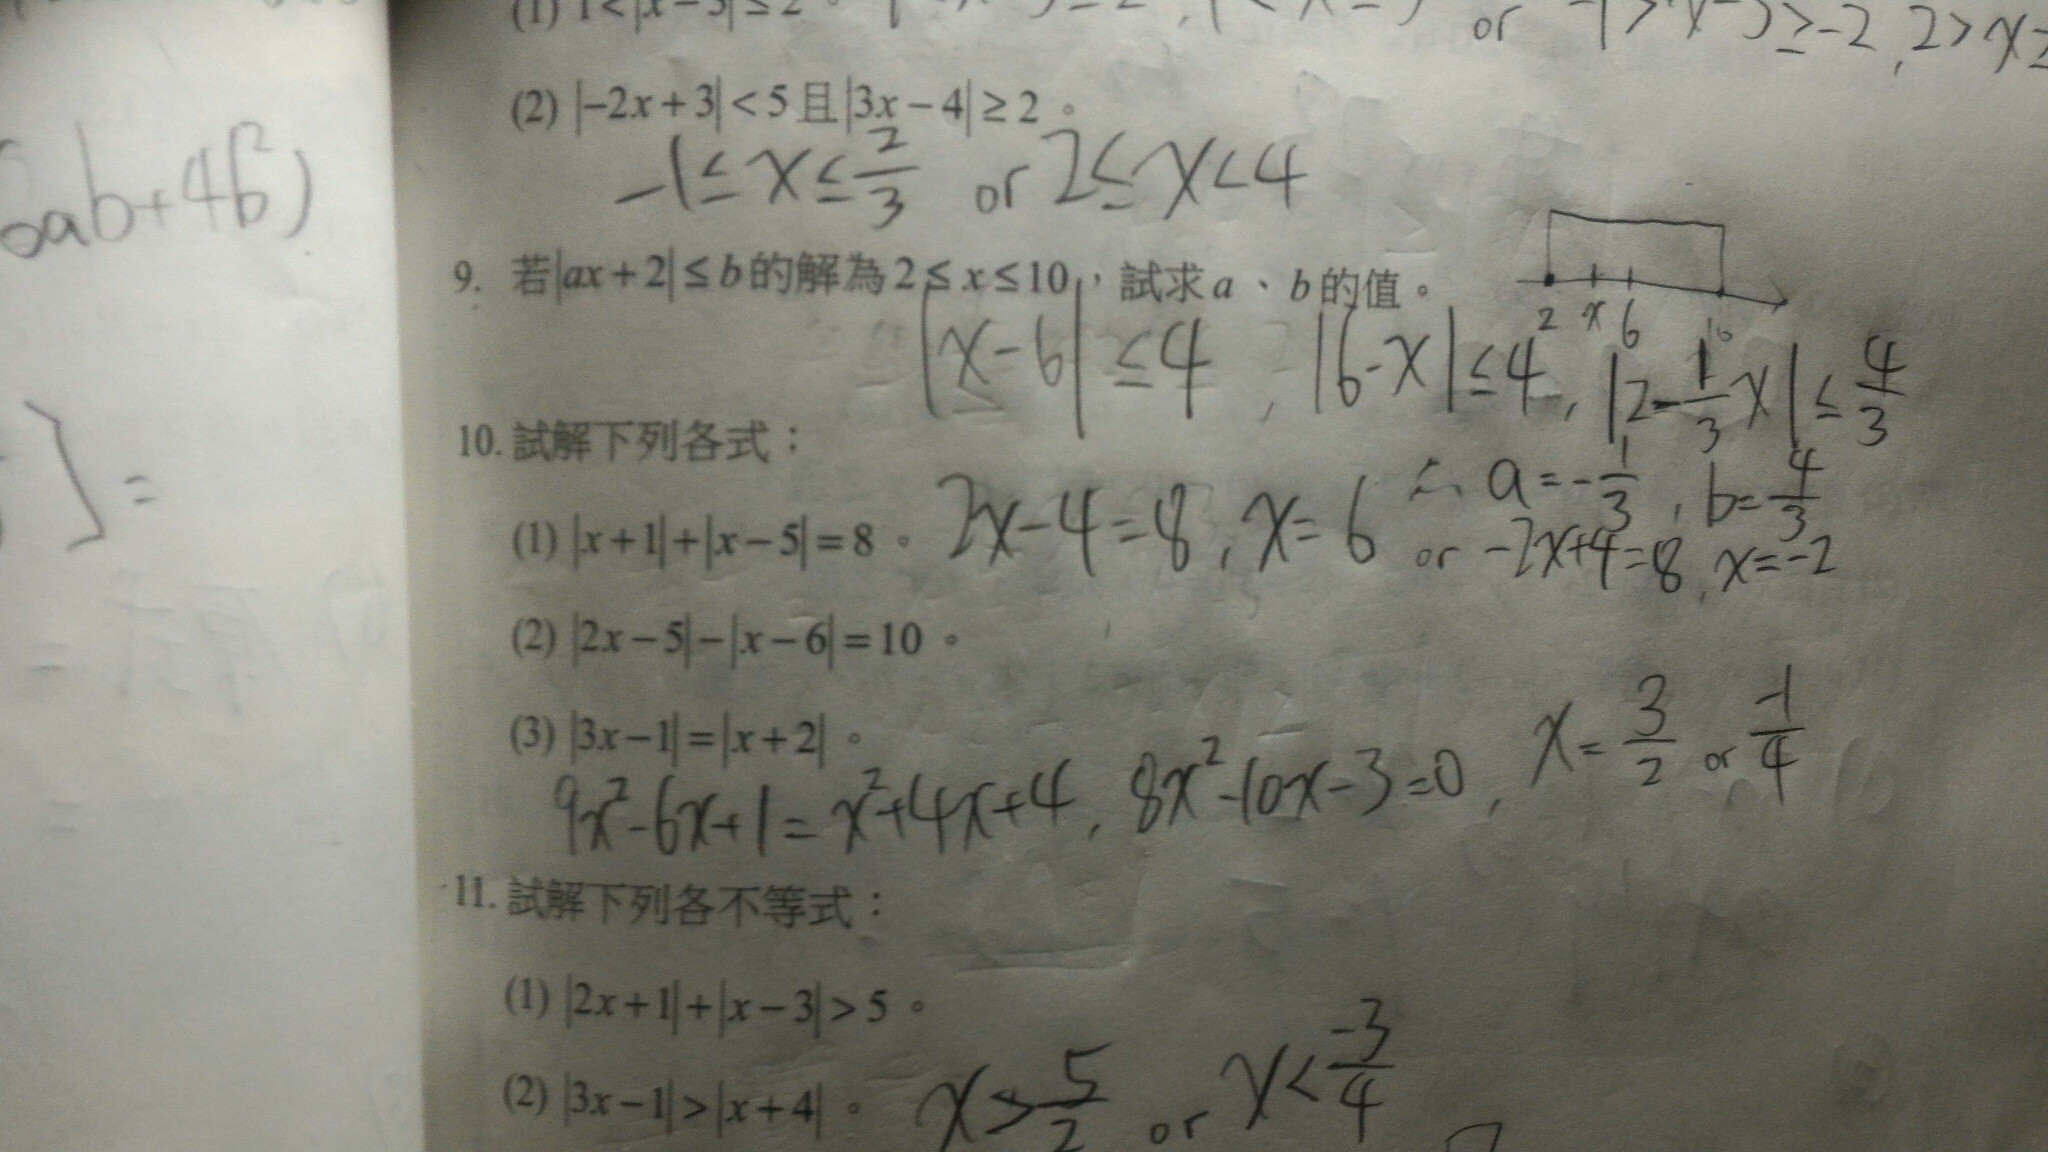 (1) 1<|x-3|≤2。 or -1>x-3≥-2, 2>x≥
(2) |-2x+3|<5且|3x-4|≥2。
-1≤x≤2/3 or 2≤x<4
6ab+4b²)
9. 若|ax+2|≤b的解為2≤x≤10,試求a、b的值。
2 x 6 10
|x-6|≤4, |6-x|≤4, |2-1/3x|≤4/3
∴ a=-1/3, b=4/3
10. 試解下列各式:
] =
(1) |x+1|+|x-5|=8。 2x-4=8, x=6 or -2x+4=8, x=-2
(2) |2x-5|-|x-6|=10。
(3) |3x-1|=|x+2|。
9x²-6x+1=x²+4x+4, 8x²-10x-3=0, x=3/2 or -1/4
11. 試解下列各不等式:
(1) |2x+1|+|x-3|>5。
(2) |3x-1|>|x+4|。 x>5/2 or x<-3/4